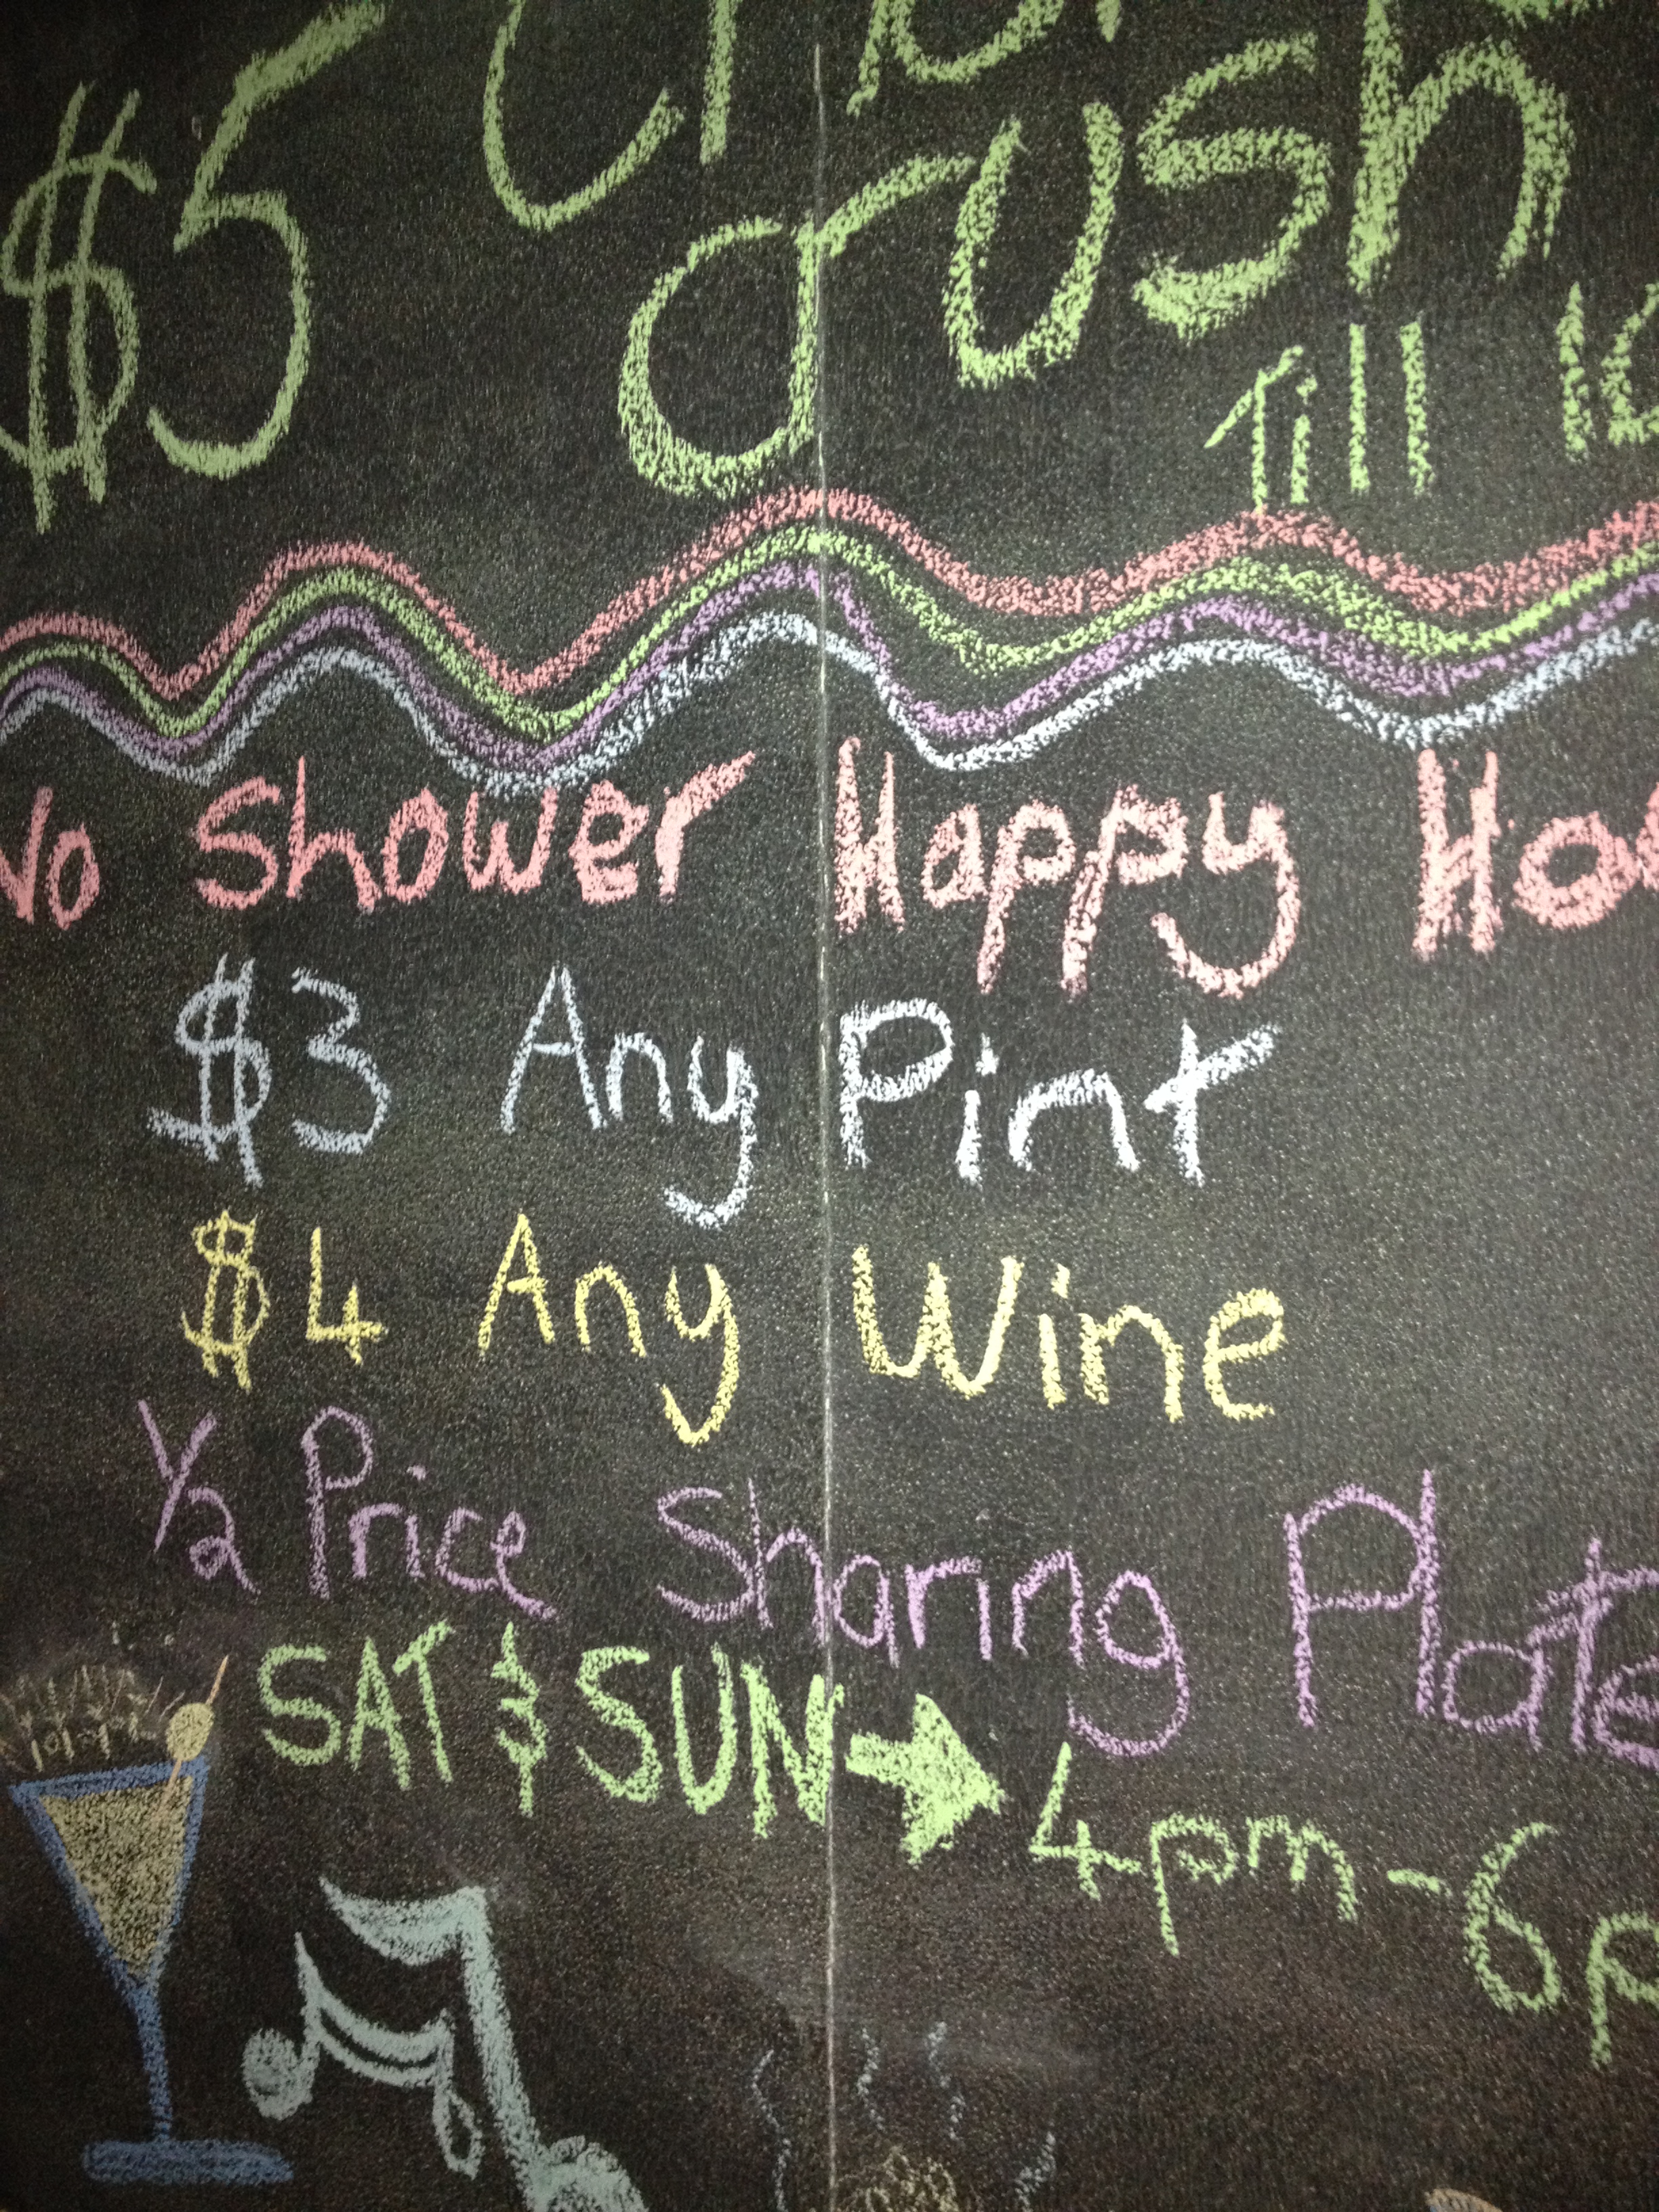 $5
crush
Till
No Shower Happy Ho
$3 Any Pint
$4 Any Wine
1/2 Price Sharing Plate
SAT & SUN → 4pm - 6p